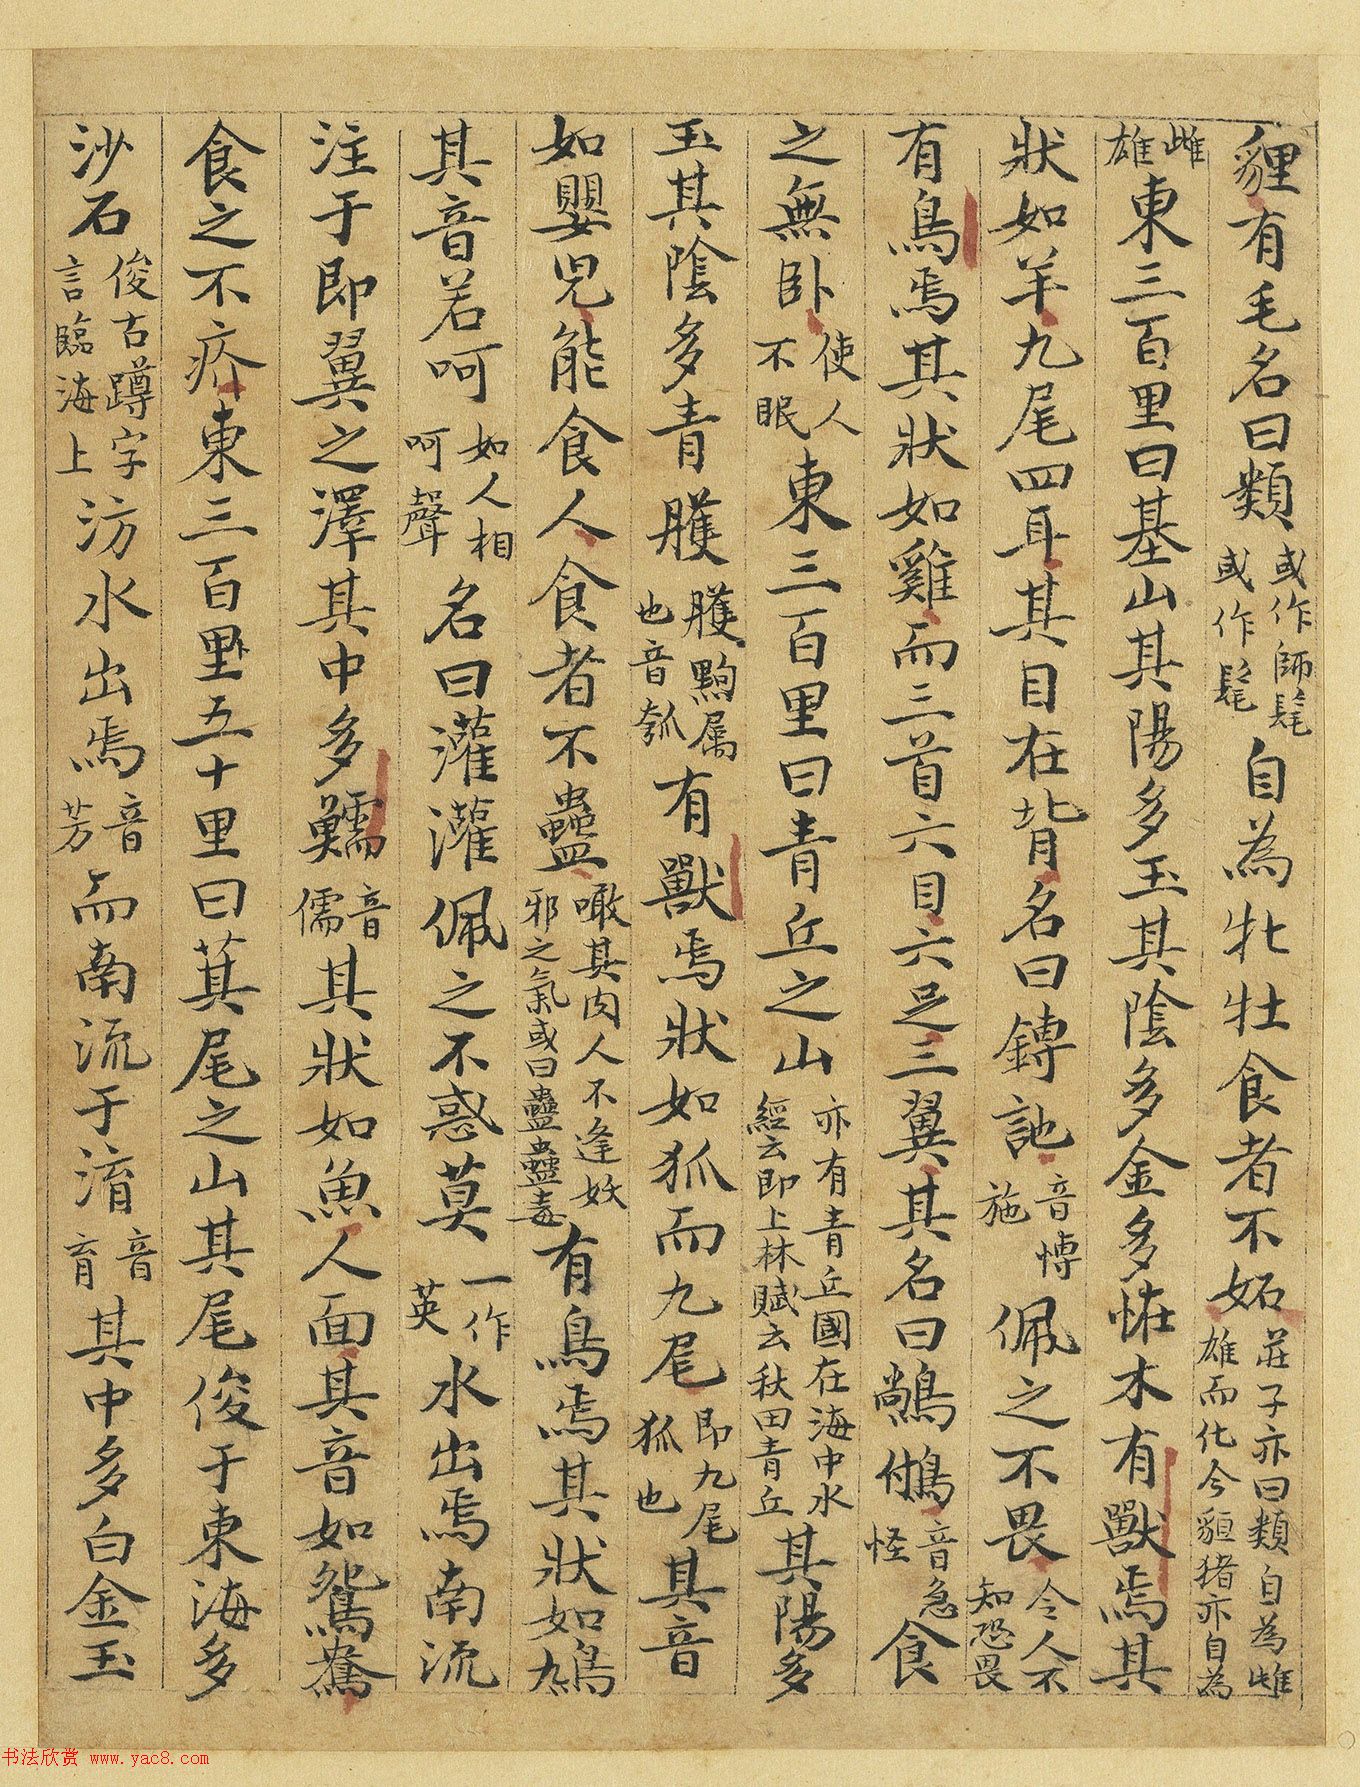 貍有毛名曰類或作師髦或作髦自為牝牡食者不妬莊子亦曰類自為雌雄而化今貆猪亦自為
雌雄東三百里曰基山其陽多玉其陰多金多怪木有獸焉其
狀如羊九尾四耳其目在背名曰鏄訑音愽施佩之不畏令人不知恐畏
有鳥焉其狀如雞而三首六目六足三翼其名曰䳤䳇音急怪食
之無卧使人不眠東三百里曰青丘之山亦有青丘國在海中水經云即上林賦云秋田青丘其陽多
玉其陰多青雘雘黝属也音瓠有獸焉狀如狐而九尾即九尾狐也其音
如嬰兒能食人食者不蠱噉其肉人不逢妖邪之氣或曰蠱蠱毒有鳥焉其狀如鳩
其音若呵如人相呵聲名曰灌灌佩之不惑莫一作英水出焉南流
注于即翼之澤其中多鱬音儒其狀如魚人面其音如鴛鴦
食之不疥東三百里五十里曰萁尾之山其尾俊于東海多
沙石俊古蹲字言臨海上汸水出焉音芳而南流于淯音育其中多白金玉
书法欣赏 www.yac8.com